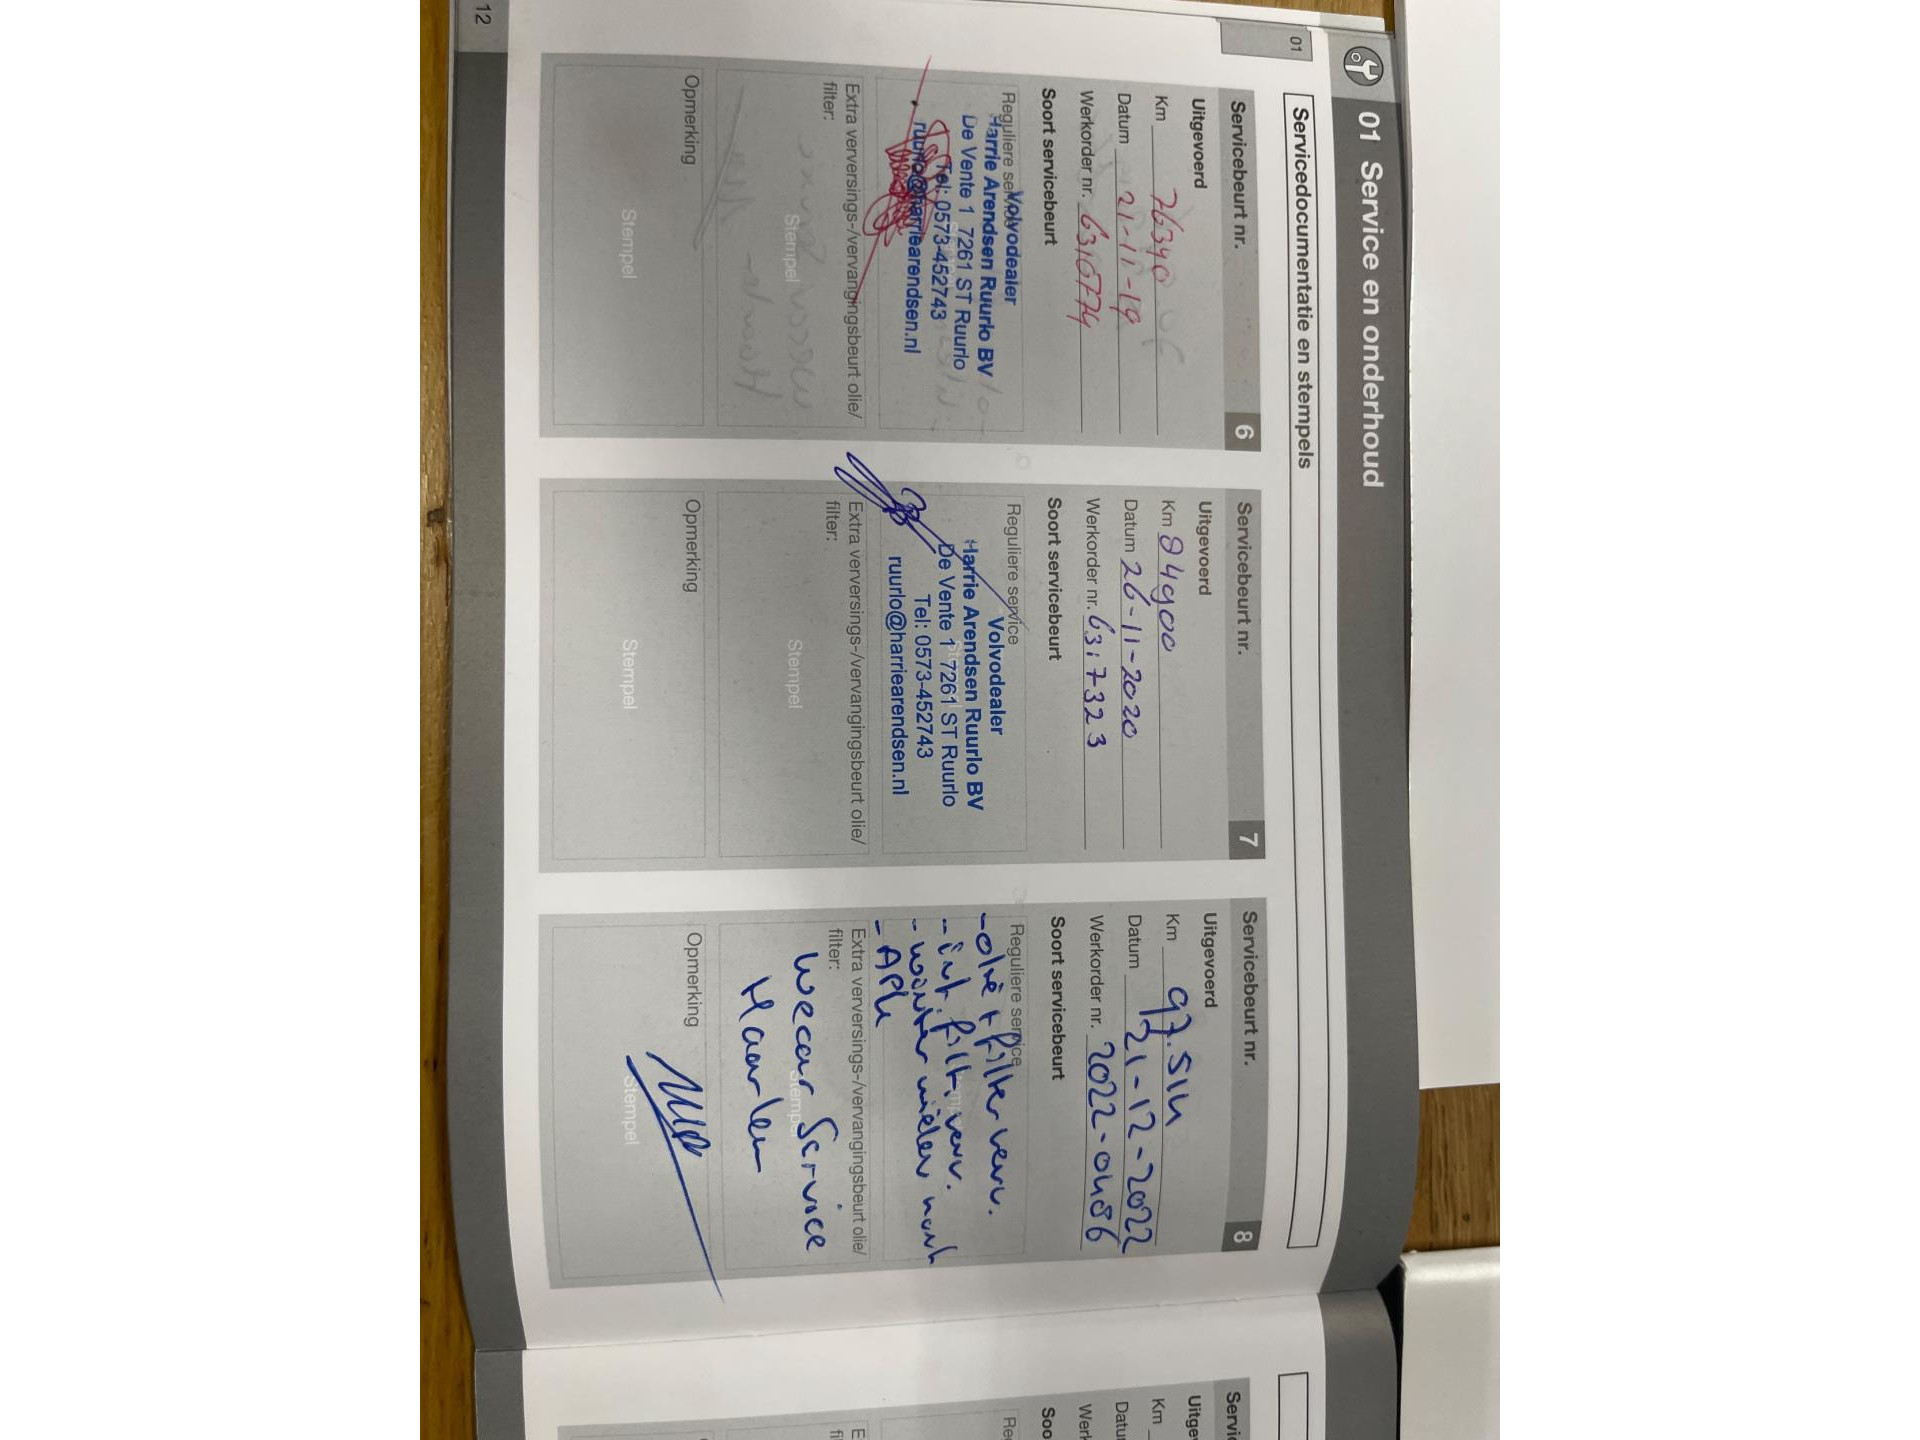 01 Service en onderhoud
01
Servicedocumentatie en stempels
Servicebeurt nr. 6
Uitgevoerd
Km 76340
Datum 21-11-19
Werkorder nr. 6316774
Soort servicebeurt
Reguliere service
Volvodealer
Harrie Arendsen Ruurlo BV
De Vente 1 7261 ST Ruurlo
Tel: 0573-452743
ruurlo@harriearendsen.nl
Extra verversings-/vervangingsbeurt olie/
filter:
Stempel
Opmerking
Stempel
Servicebeurt nr. 7
Uitgevoerd
Km 84900
Datum 26-11-2020
Werkorder nr. 6317323
Soort servicebeurt
Reguliere service
Volvodealer
Harrie Arendsen Ruurlo BV
De Vente 1 7261 ST Ruurlo
Tel: 0573-452743
ruurlo@harriearendsen.nl
Extra verversings-/vervangingsbeurt olie/
filter:
Stempel
Opmerking
Stempel
Servicebeurt nr. 8
Uitgevoerd
Km 97.514
Datum 21-12-2022
Werkorder nr. 2022-0486
Soort servicebeurt
Reguliere service
- olie + filter verv.
- int. filt. verv.
- winter wielen mont
- APK
Extra verversings-/vervangingsbeurt olie/
filter:
Wecar Service
Haarlem
Stempel
Opmerking
Stempel
12